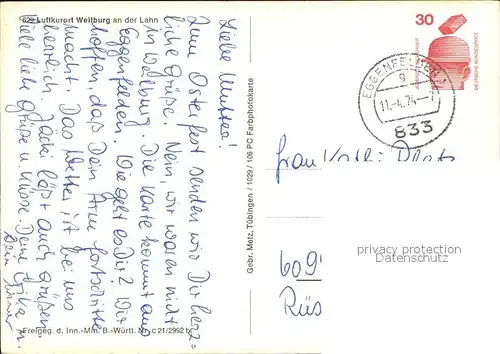 629 Luftkurort Weilburg an der Lahn
Liebe Mutter!
Zum Osterfest senden wir Dir herz=
liche Grüße. Nein, wir waren nicht
in Weilburg. Die Karte kommt aus
Eggenfelden. Wie geht es Dir? Wir
hoffen, daß Dein Arm Fortschritte
macht. Das Wetter ist bei uns
herrlich. Jacki läßt auch grüßen.
Viele liebe Grüße u. Küsse. Deine Erika u.
Dein
Freigeg. d. Inn.-Min. B.-Württ. Nr. c 21/2992 b
Gebr. Metz, Tübingen / 1029 / 106 PC Farbphotokarte
30
DEUTSCHE BUNDESPOST
EGGENFELDEN 1
g
11.-4.74.-7
833
Frau
609
Rüs
privacy protection
Datenschutz